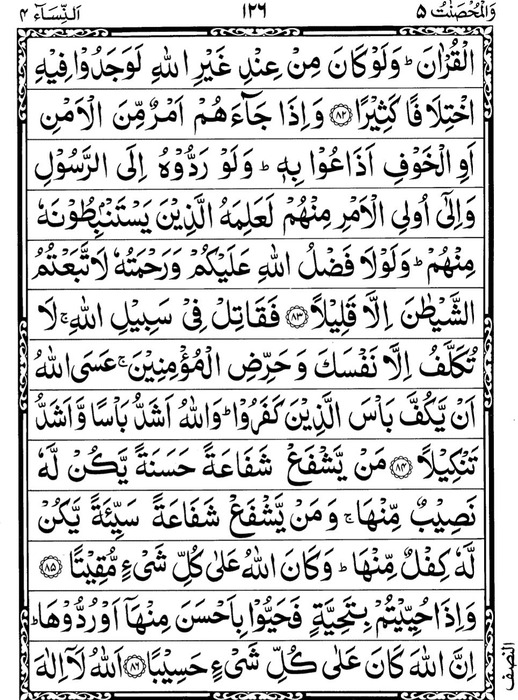 وَالْمُحْصَنٰتُ ۵
۱۲۶
اَلنِّسَآء ۴
الْقُرْاٰنَ ؕ وَلَوْ كَانَ مِنْ عِنْدِ غَيْرِ اللّٰهِ لَوَجَدُوْا فِيْهِ
اخْتِلَافًا كَثِيْرًا ﴿۸۲﴾ وَاِذَا جَآءَهُمْ اَمْرٌ مِّنَ الْاَمْنِ
اَوِ الْخَوْفِ اَذَاعُوْا بِهٖ ؕ وَلَوْ رَدُّوْهُ اِلَى الرَّسُوْلِ
وَاِلٰٓى اُولِى الْاَمْرِ مِنْهُمْ لَعَلِمَهُ الَّذِيْنَ يَسْتَنْۢبِطُوْنَهٗ
مِنْهُمْ ؕ وَلَوْلَا فَضْلُ اللّٰهِ عَلَيْكُمْ وَرَحْمَتُهٗ لَاتَّبَعْتُمُ
الشَّيْطٰنَ اِلَّا قَلِيْلًا ﴿۸۳﴾ فَقَاتِلْ فِىْ سَبِيْلِ اللّٰهِ ۚ لَا
تُكَلَّفُ اِلَّا نَفْسَكَ وَحَرِّضِ الْمُؤْمِنِيْنَ ۚ عَسَى اللّٰهُ
اَنْ يَّكُفَّ بَاْسَ الَّذِيْنَ كَفَرُوْا ؕ وَاللّٰهُ اَشَدُّ بَاْسًا وَّاَشَدُّ
تَنْكِيْلًا ﴿۸۴﴾ مَنْ يَّشْفَعْ شَفَاعَةً حَسَنَةً يَّكُنْ لَّهٗ
نَصِيْبٌ مِّنْهَا ۚ وَمَنْ يَّشْفَعْ شَفَاعَةً سَيِّئَةً يَّكُنْ
لَّهٗ كِفْلٌ مِّنْهَا ؕ وَكَانَ اللّٰهُ عَلٰى كُلِّ شَىْءٍ مُّقِيْتًا ﴿۸۵﴾
وَاِذَا حُيِّيْتُمْ بِتَحِيَّةٍ فَحَيُّوْا بِاَحْسَنَ مِنْهَاۤ اَوْ رُدُّوْهَا ؕ
اِنَّ اللّٰهَ كَانَ عَلٰى كُلِّ شَىْءٍ حَسِيْبًا ﴿۸۶﴾ اَللّٰهُ لَاۤ اِلٰهَ
النصف